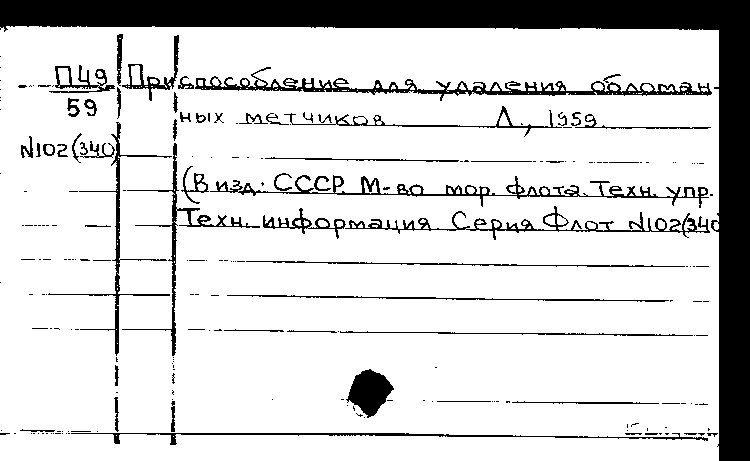 П49 Приспособление для удаления обломан-
59 ных метчиков Л., 1959
N102(340)
(В изд: СССР. М-во мор. флота. Техн. упр.
Техн. информация Серия Флот N102(340